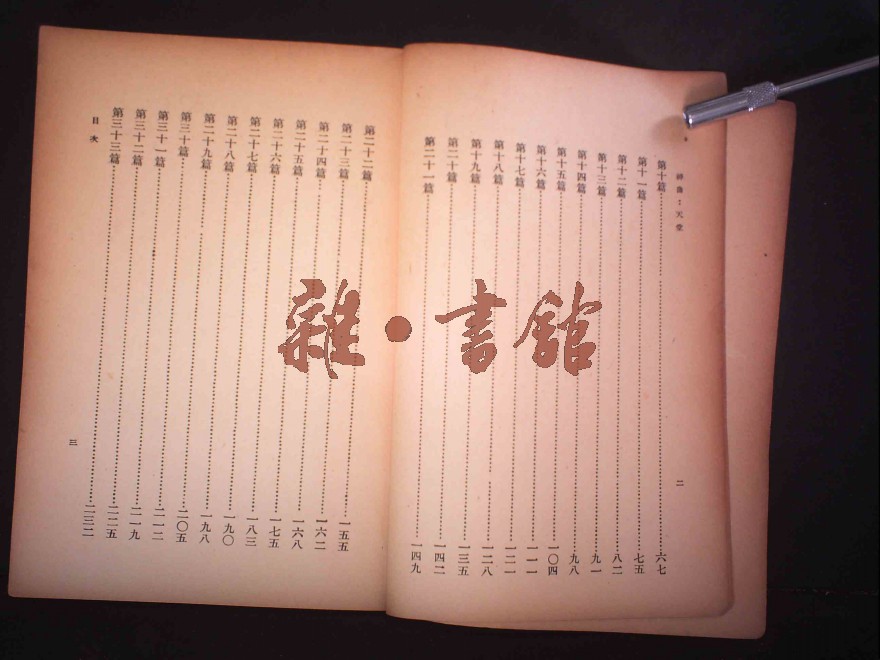 神曲：天堂
第十篇……六七
第十一篇……七五
第十二篇……八二
第十三篇……九一
第十四篇……九八
第十五篇……一〇四
第十六篇……一一一
第十七篇……一二一
第十八篇……一二八
第十九篇……一三五
第二十篇……一四二
第二十一篇……一四九
二
第二十二篇……一五五
第二十三篇……一六二
第二十四篇……一六八
第二十五篇……一七五
第二十六篇……一八三
第二十七篇……一九〇
第二十八篇……一九八
第二十九篇……二〇五
第三十篇……二一二
第三十一篇……二一九
第三十二篇……二二五
第三十三篇……二三二
目次
三
雜·書館